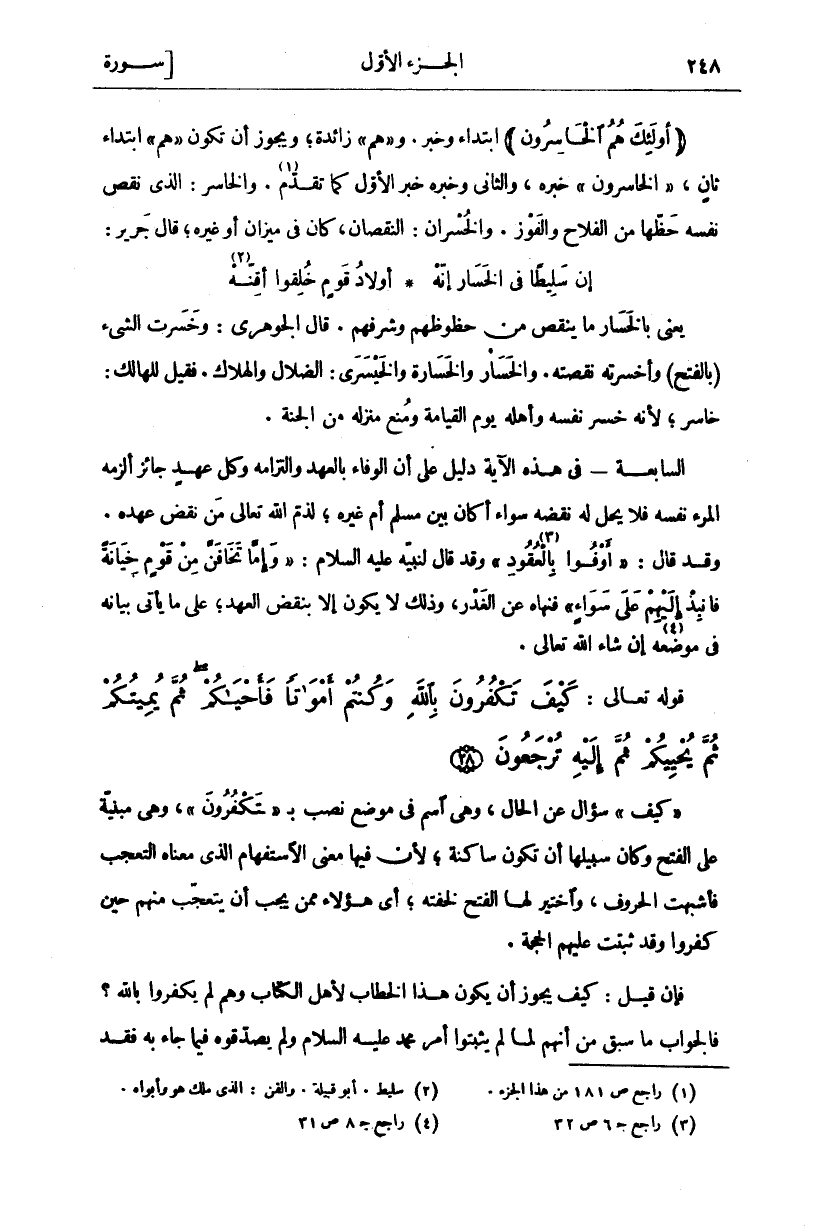 ٢٤٨ الجـــزء الأول [ســـورة
﴿أُولَئِكَ هُمُ ٱلْخَاسِرُون﴾ ابتداء وخبر . و«هم» زائدة؛ ويجوز أن تكون «هم» ابتداء
ثانٍ ، « الخاسرون » خبره ، والثانى وخبره خبر الأوّل كما تقــدّم (١) . والخاسر : الذى نقص
نفسه حَظّها من الفلاح والفَوْز . والخُسْران : النقصان، كان فى ميزان أو غيره؛ قال جَرير :
إن سَلِيطًا فى الخَسَار إنّهْ * أولادُ قَومٍ خُلِقوا أقِنَّــهْ (٢)
يعنى بالخَسَار ما ينقص من حظوظهم وشرفهم . قال الجوهرى : وخَسَرت الشىء
(بالفتح) وأخسرته نقصته. والخَسَار والخَسَارة والخَيْسَرَى : الضلال والهلاك . فقيل للهالك :
خاسر ؛ لأنه خسر نفسه وأهله يوم القيامة ومُنع منزله من الجنة .
السابعـــة — فى هــذه الآية دليل على أن الوفاء بالعهد والتزامه وكل عهــدٍ جائز ألزمه
المرء نفسه فلا يحل له نقضه سواء أكان بين مسلم أم غيره ؛ لذمّ الله تعالى مَن نقض عهده .
وقــد قال : « أَوْفُــوا بِالْعُقُودِ (٣) » وقد قال لنبيّه عليه السلام : « وَإِمَّا تَخَافَنَّ مِنْ قَوْمٍ خِيَانَةً
فَانْبِذْ إِلَيْهِمْ عَلَى سَوَاءٍ» فنهاه عن الغَدْر، وذلك لا يكون إلا بنقض العهد؛ على ما يأتى بيانه
فى موضعه (٤) إن شاء الله تعالى .
قوله تعــالى : كَيْفَ تَكْفُرُونَ بِٱللَّهِ وَكُنتُمْ أَمْوَٰتًا فَأَحْيَـٰكُمْ ۖ ثُمَّ يُمِيتُكُمْ
ثُمَّ يُحْيِيكُمْ ثُمَّ إِلَيْهِ تُرْجَعُونَ ﴿٢٨﴾
«كيف » سؤال عن الحال ، وهى ٱسم فى موضع نصب بـ « ـتَكْفُرُونَ » ، وهى مبنيّة
على الفتح وكان سبيلها أن تكون ساكنة ؛ لأن فيها معنى الٱستفهام الذى معناه التعجب
فأشبهت الحروف ، وٱختير لهــا الفتح لخفته ؛ أى هــؤلاء ممن يجب أن يتعجّب منهم حين
كفروا وقد ثبتت عليهم الحجة .
فإن قيــل : كيف يجوز أن يكون هــذا الخطاب لأهل الكتاب وهم لم يكفروا بالله ؟
فالجواب ما سبق من أنهم لمــا لم يثبتوا أمر محمد عليــه السلام ولم يصدّقوه فيما جاء به فقــد
(١) راجع ص ١٨١ من هذا الجزء . (٢) سليط . أبو قبيلة . والقن : الذى ملك هو وأبواه .
(٣) راجع جـ ٦ ص ٣٢ (٤) راجع جـ ٨ ص ٣١